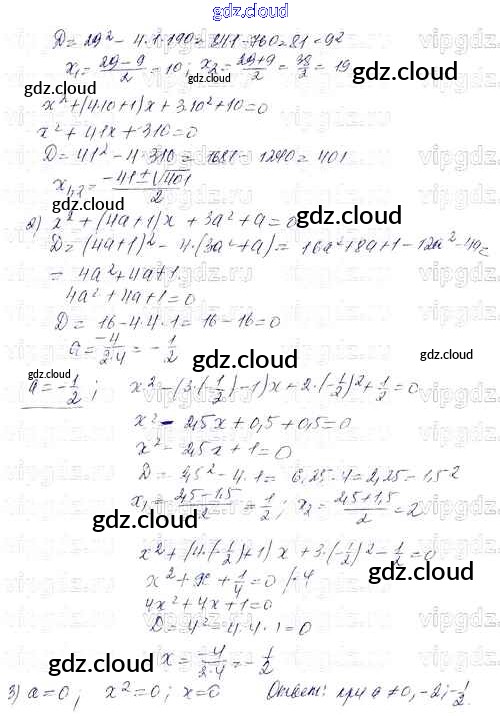 gdz.cloud
D = 29² - 4·1·190 = 841 - 760 = 81 = 9²
x₁ = (29-9)/2 = 10; x₂ = (29+9)/2 = 38/2 = 19
gdz.cloud
x² + (4·10+1)x + 3·10² + 10 = 0
x² + 41x + 310 = 0
D = 41² - 4·310 = 1681 - 1240 = 401
x₁,₂ = (-41±√401)/2
gdz.cloud
2) x² + (4a+1)x + 3a² + a = 0
D = (4a+1)² - 4·(3a²+a) = 16a²+8a+1-12a²-4a =
= 4a²+4a+1
4a²+4a+1=0
D = 16-4·4·1 = 16-16=0
a = -4/2·4 = -1/2
gdz.cloud
gdz.cloud
gdz.cloud
a = -1/2; x² - (3·(-1/2)-1)x + 2·(-1/2)² + 1/2 = 0
x² - 2,5x + 0,5 + 0,5 = 0
gdz.cloud
x² - 2,5x + 1 = 0
D = 2,5² - 4·1 = 6,25 - 4 = 2,25 = 1,5²
x₁ = (2,5-1,5)/2 = 1/2; x₂ = (2,5+1,5)/2 = 2
gdz.cloud
x² + (4·(-1/2)+1)x + 3·(-1/2)² - 1/2 = 0
x² + x + 1/4 = 0 /·4
gdz.cloud
4x² + 4x + 1 = 0
D = 4² - 4·4·1 = 0
x = -4/2·4 = -1/2
gdz.cloud
3) a=0; x²=0; x=0 Ответ: при a≠0, -2; -1/2.